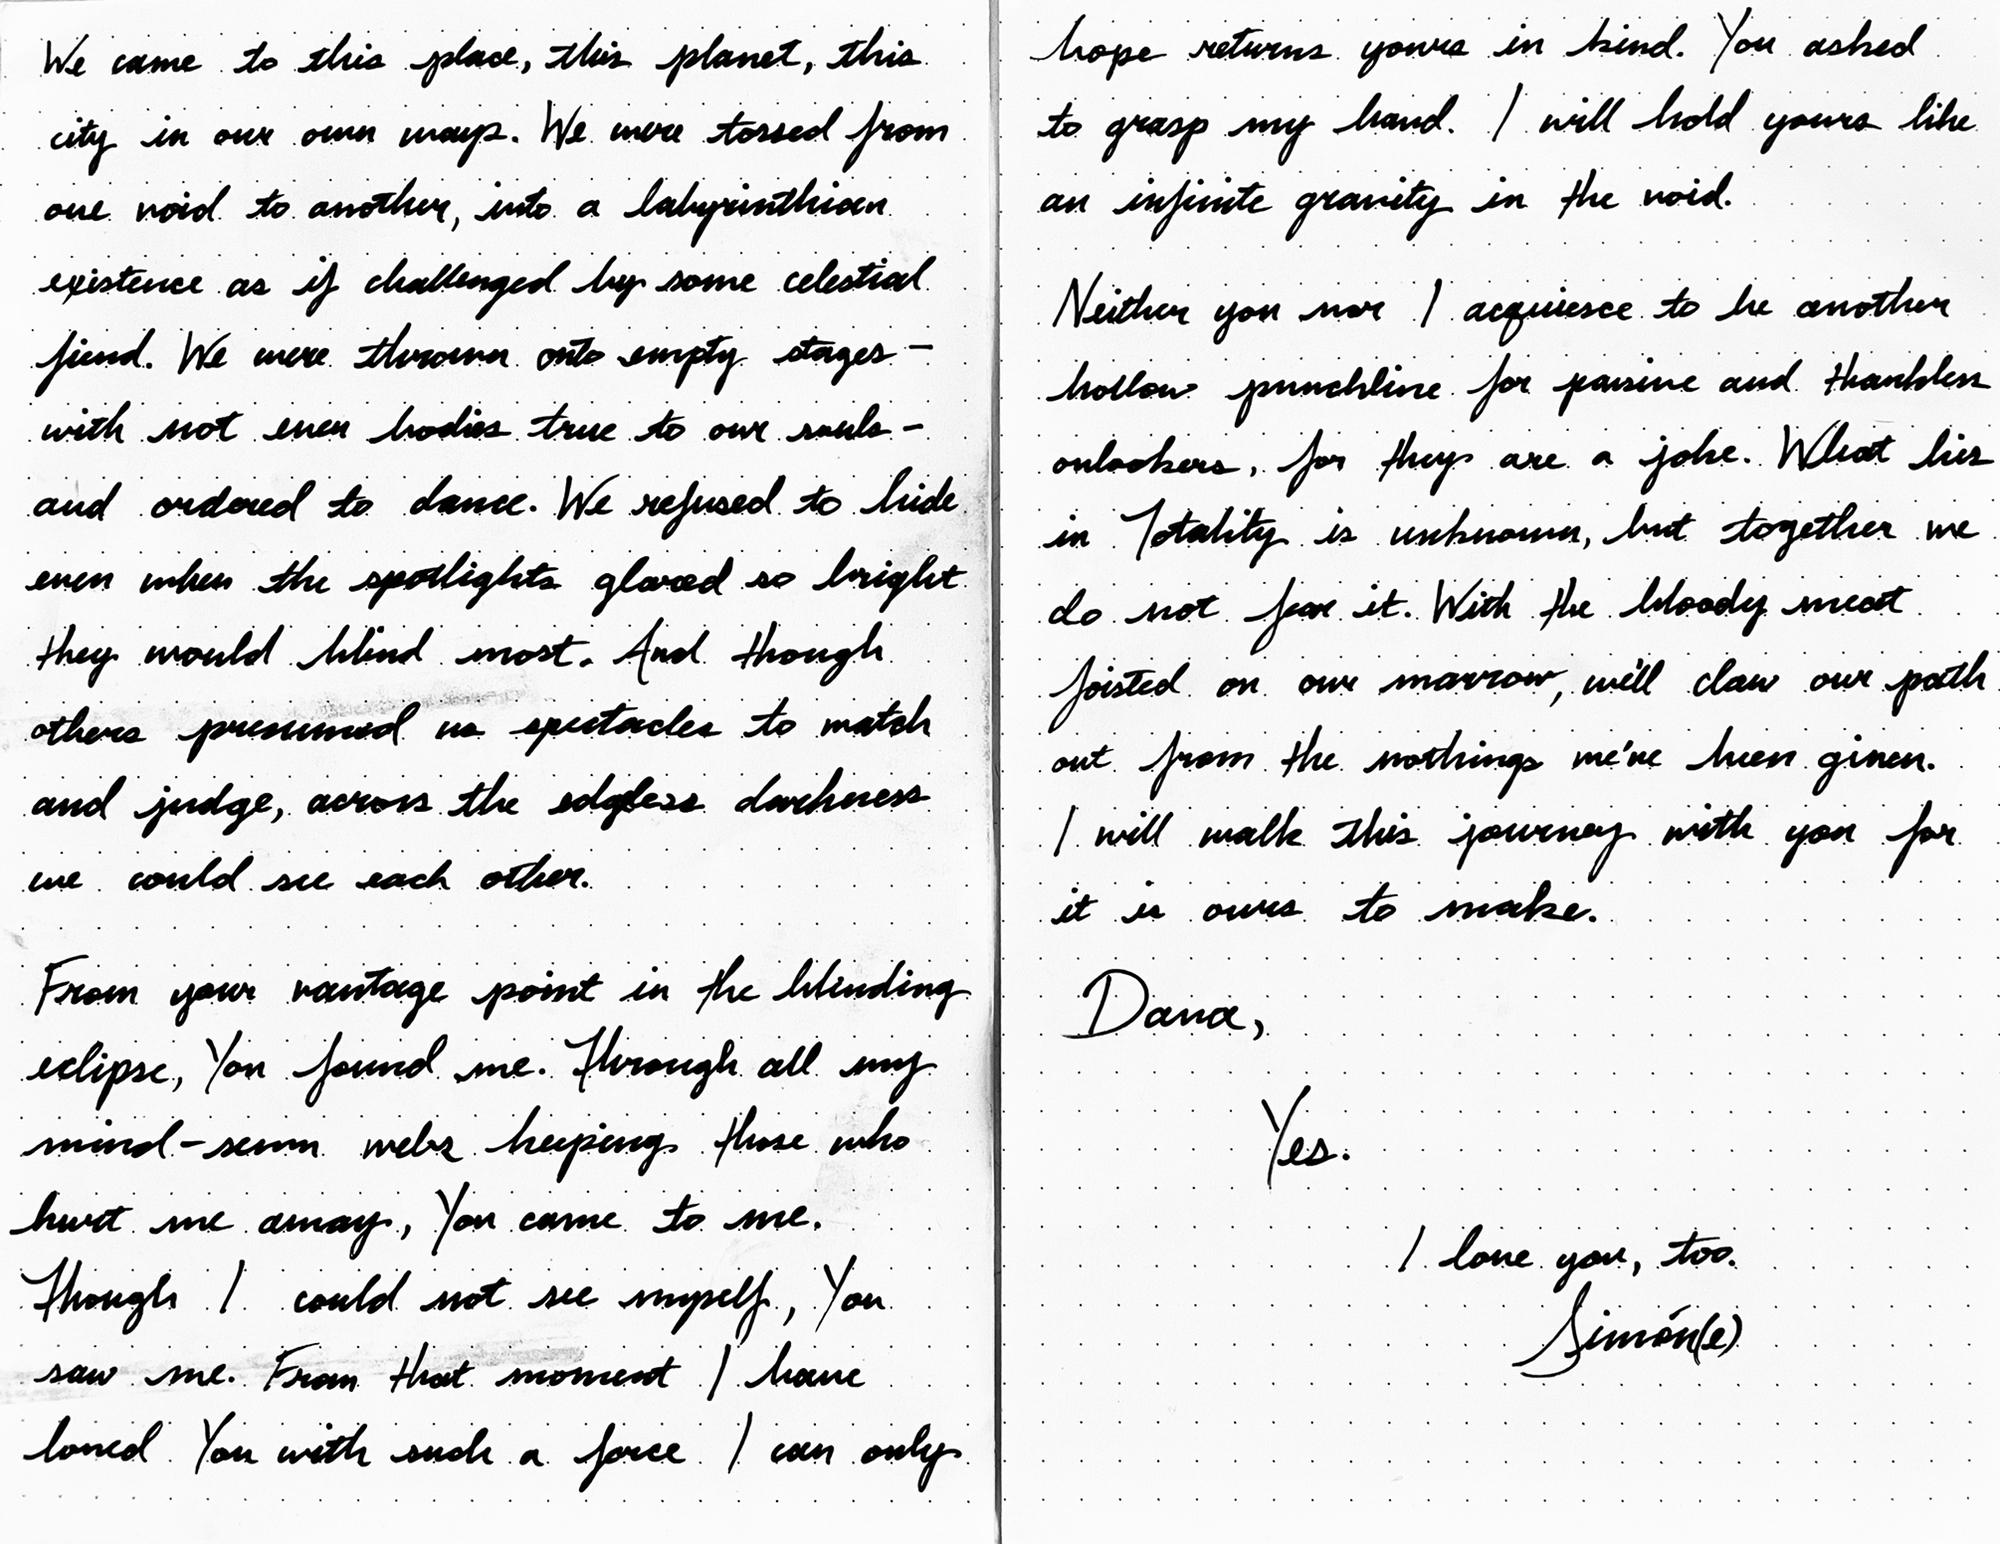 We came to this place, this planet, this
city in our own ways. We were tossed from
one void to another, into a labyrinthian
existence as if challenged by some celestial
fiend. We were thrown onto empty stages –
with not even bodies true to our souls –
and ordered to dance. We refused to hide
even when the spotlights glared so bright
they would blind most. And though
others presumed us spectacles to watch
and judge, across the edgeless darkness
we could see each other.
From your vantage point in the blinding
eclipse, You found me. Through all my
mind-sewn webs keeping those who
hurt me away, You came to me.
Though I could not see myself, You
saw me. From that moment I have
loved You with such a force I can only
hope returns yours in kind. You asked
to grasp my hand. I will hold yours like
an infinite gravity in the void.
Neither you nor I acquiesce to be another
hollow punchline for passive and thankless
onlookers, for they are a joke. What lies
in Totality is unknown, but together we
do not fear it. With the bloody meat
foisted on our marrow, we'll claw our path
out from the nothings we've been given.
I will walk this journey with you for
it is ours to make.
Dana,
Yes.
I love you, too.
Simón(e)